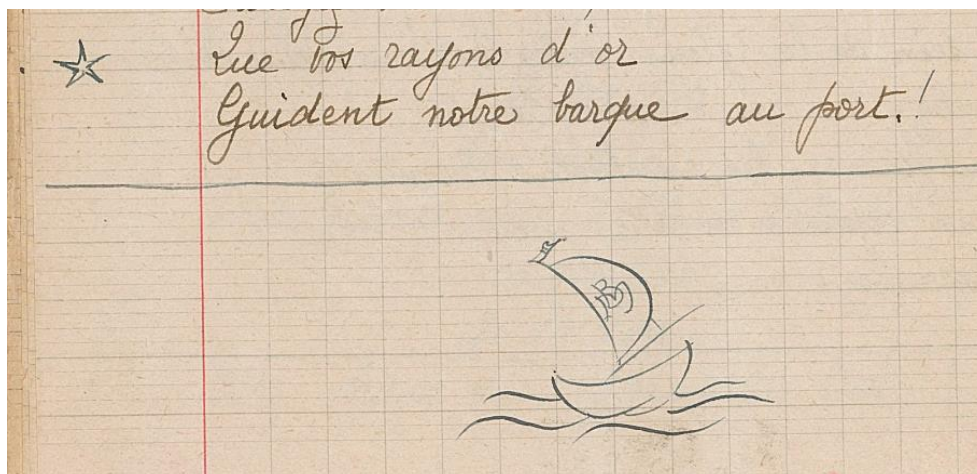 Que vos rayons d'or
Guident notre barque au port.!